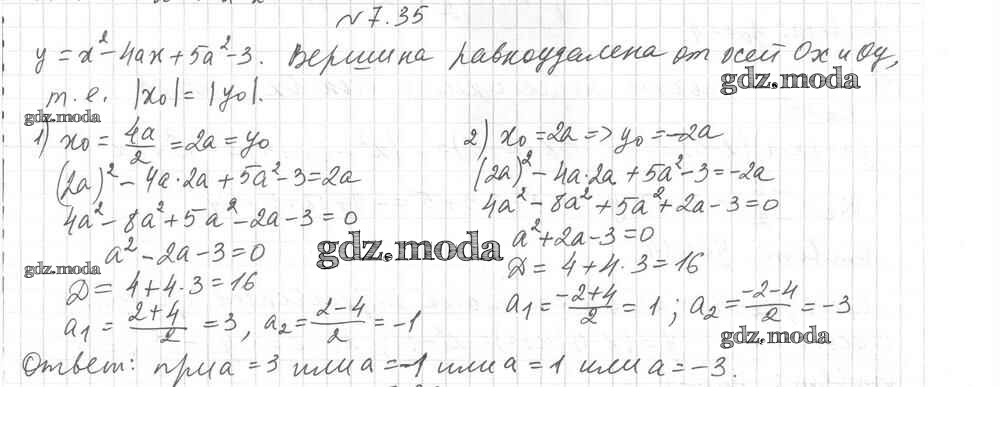 №7.35
y = x² - 4ax + 5a² - 3. Вершина равноудалена от осей Ox и Oy,
gdz.moda
т.е. |x₀| = |y₀|.
gdz.moda
1) x₀ = 4a/2 = 2a = y₀
(2a)² - 4a·2a + 5a² - 3 = 2a
4a² - 8a² + 5a² - 2a - 3 = 0
a² - 2a - 3 = 0
gdz.moda
gdz.moda
Д = 4 + 4·3 = 16
a₁ = (2+4)/2 = 3, a₂ = (2-4)/2 = -1
2) x₀ = 2a => y₀ = -2a
(2a)² - 4a·2a + 5a² - 3 = -2a
4a² - 8a² + 5a² + 2a - 3 = 0
a² + 2a - 3 = 0
Д = 4 + 4·3 = 16
a₁ = (-2+4)/2 = 1; a₂ = (-2-4)/2 = -3
gdz.moda
Ответ: при a = 3 или a = -1 или a = 1 или a = -3.